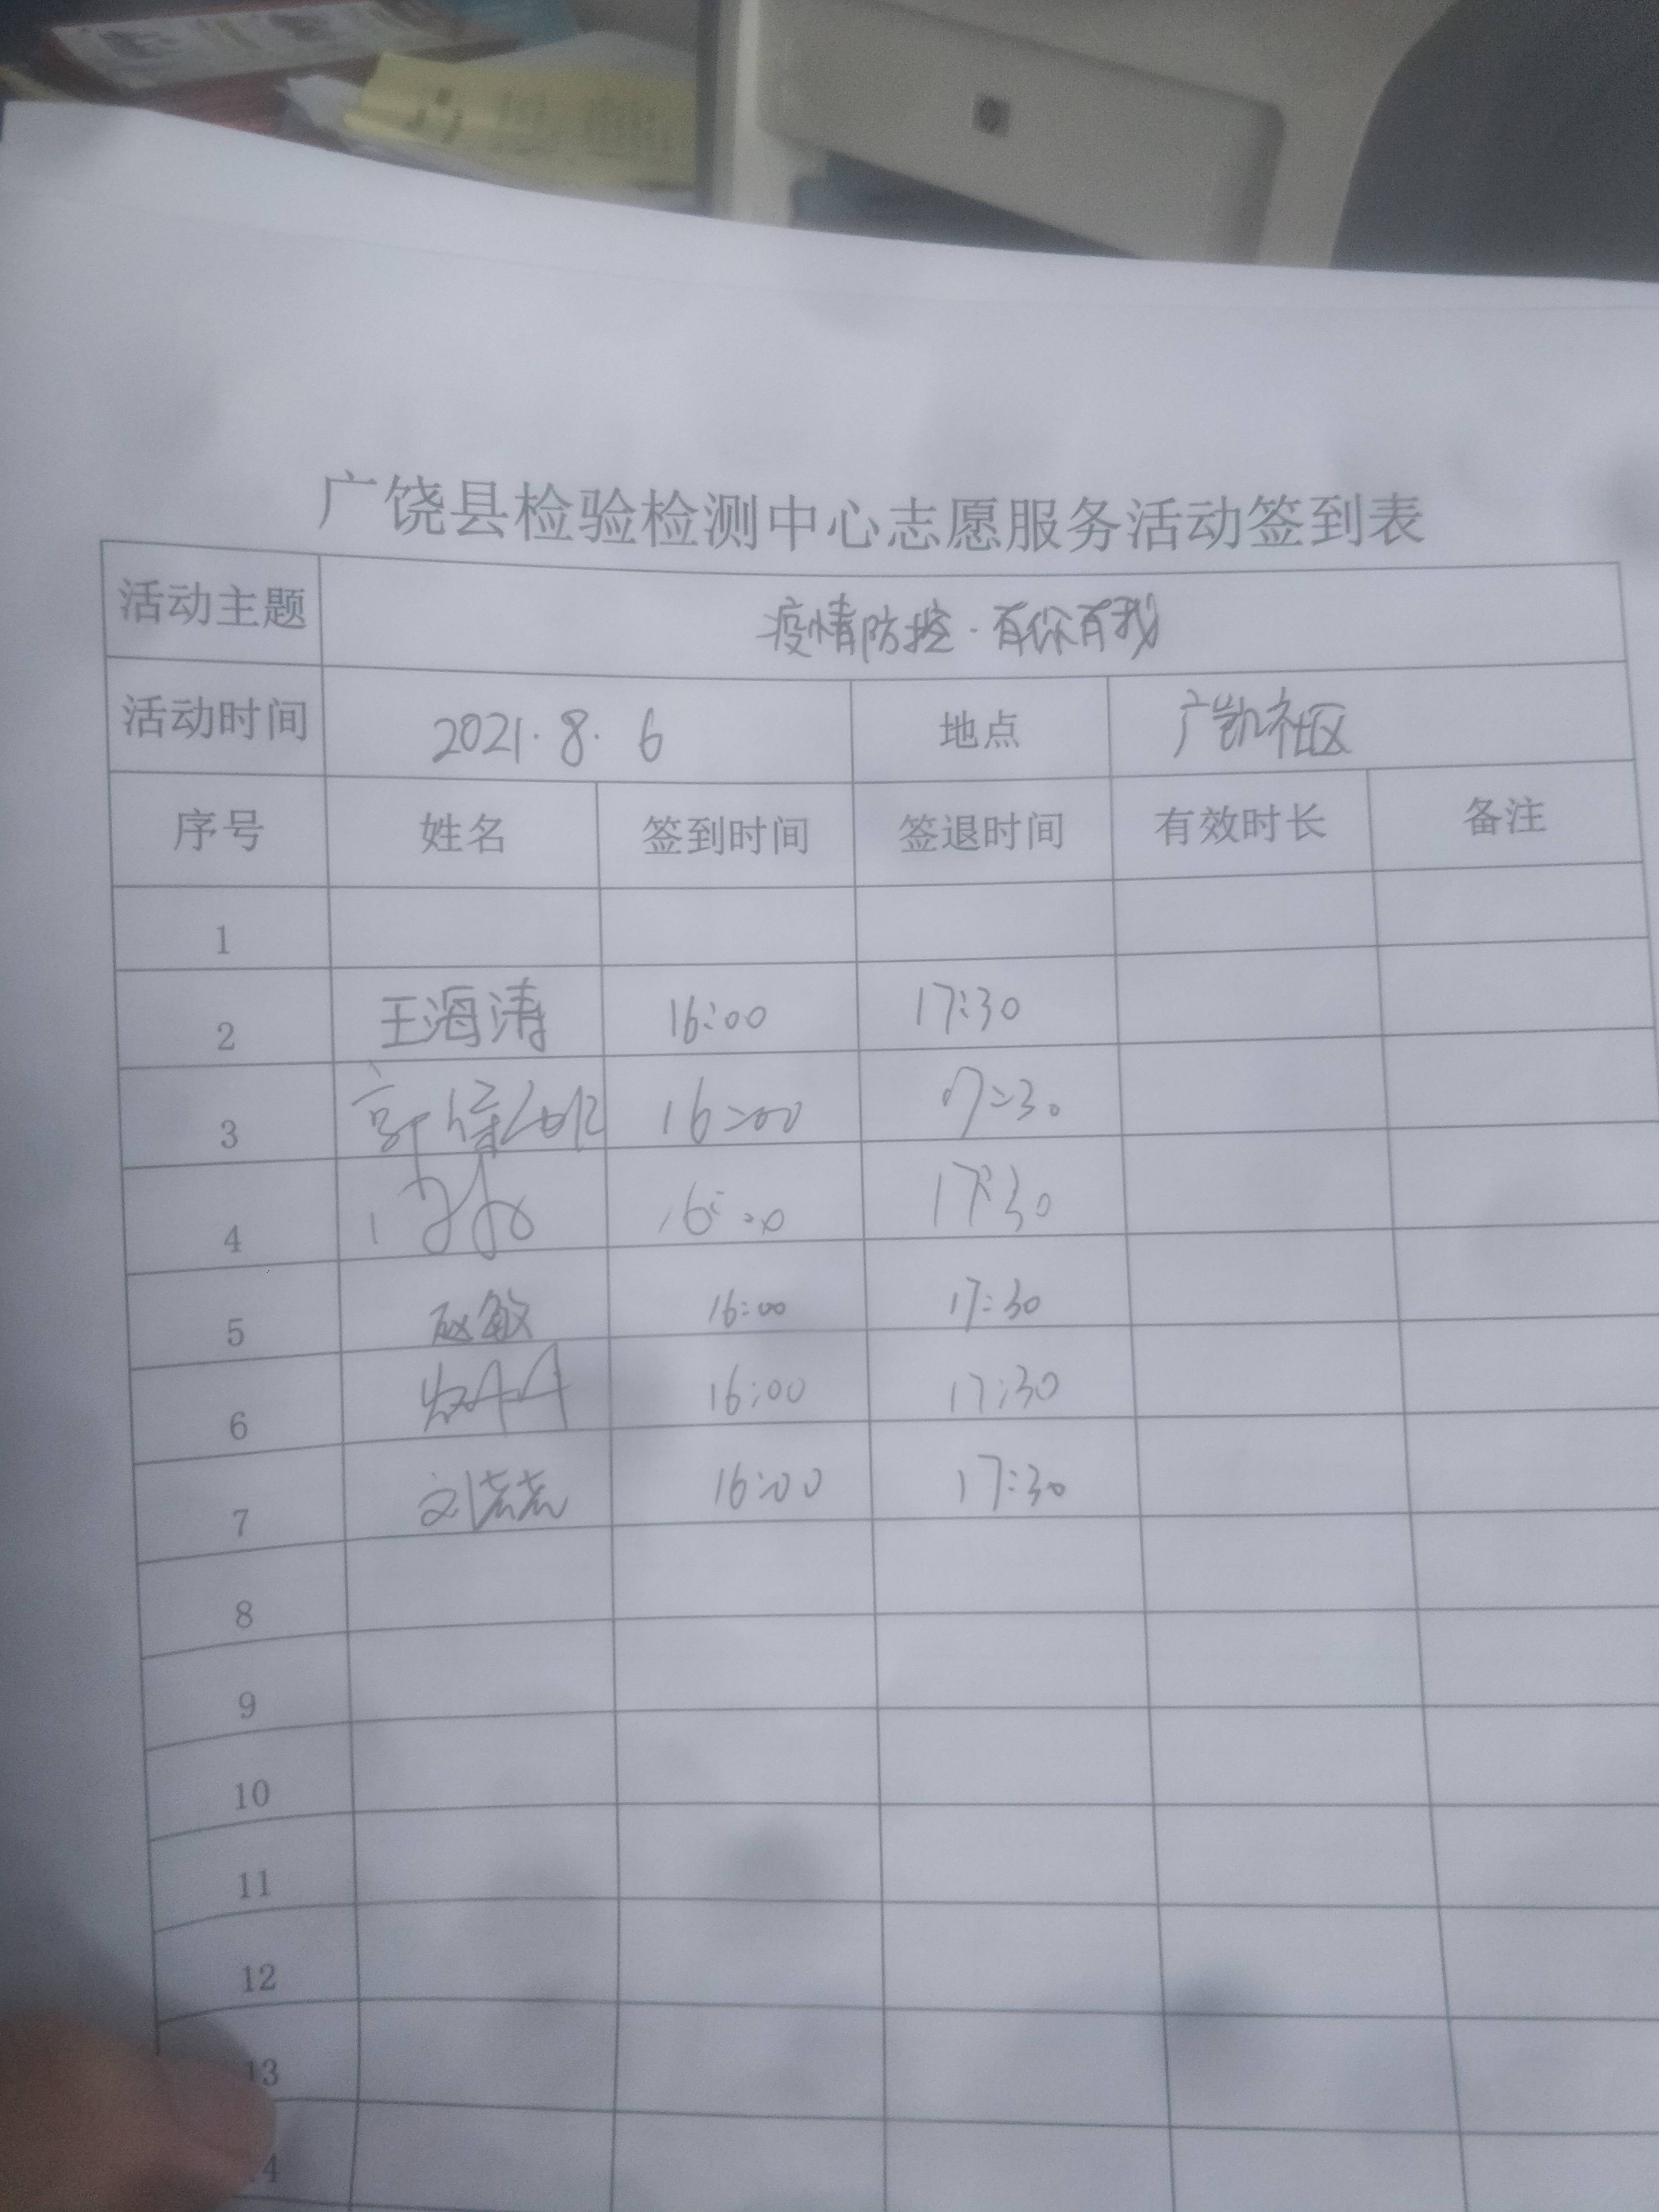 广饶县检验检测中心志愿服务活动签到表
活动主题 疫情防控·有你有我
活动时间 2021.8.6 地点 广凯社区
序号 姓名 签到时间 签退时间 有效时长 备注
1
2 王海涛 16:00 17:30
3 16:00 17:30
4 16:00 17:30
5 赵敏 16:00 17:30
6 16:00 17:30
7 16:00 17:30
8
9
10
11
12
13
14